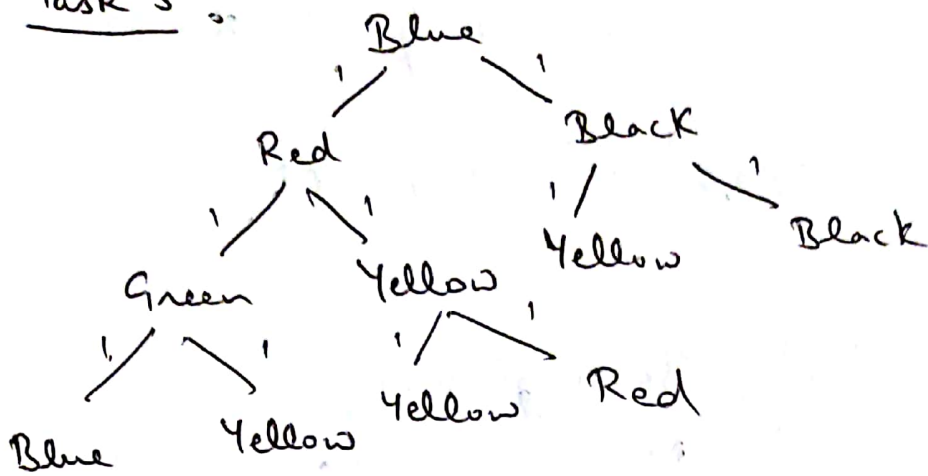 Task 3 :
Blue
1 1
Red Black
1 1 1 1
Green Yellow Yellow Black
1 1 1 1
Blue Yellow Yellow Red